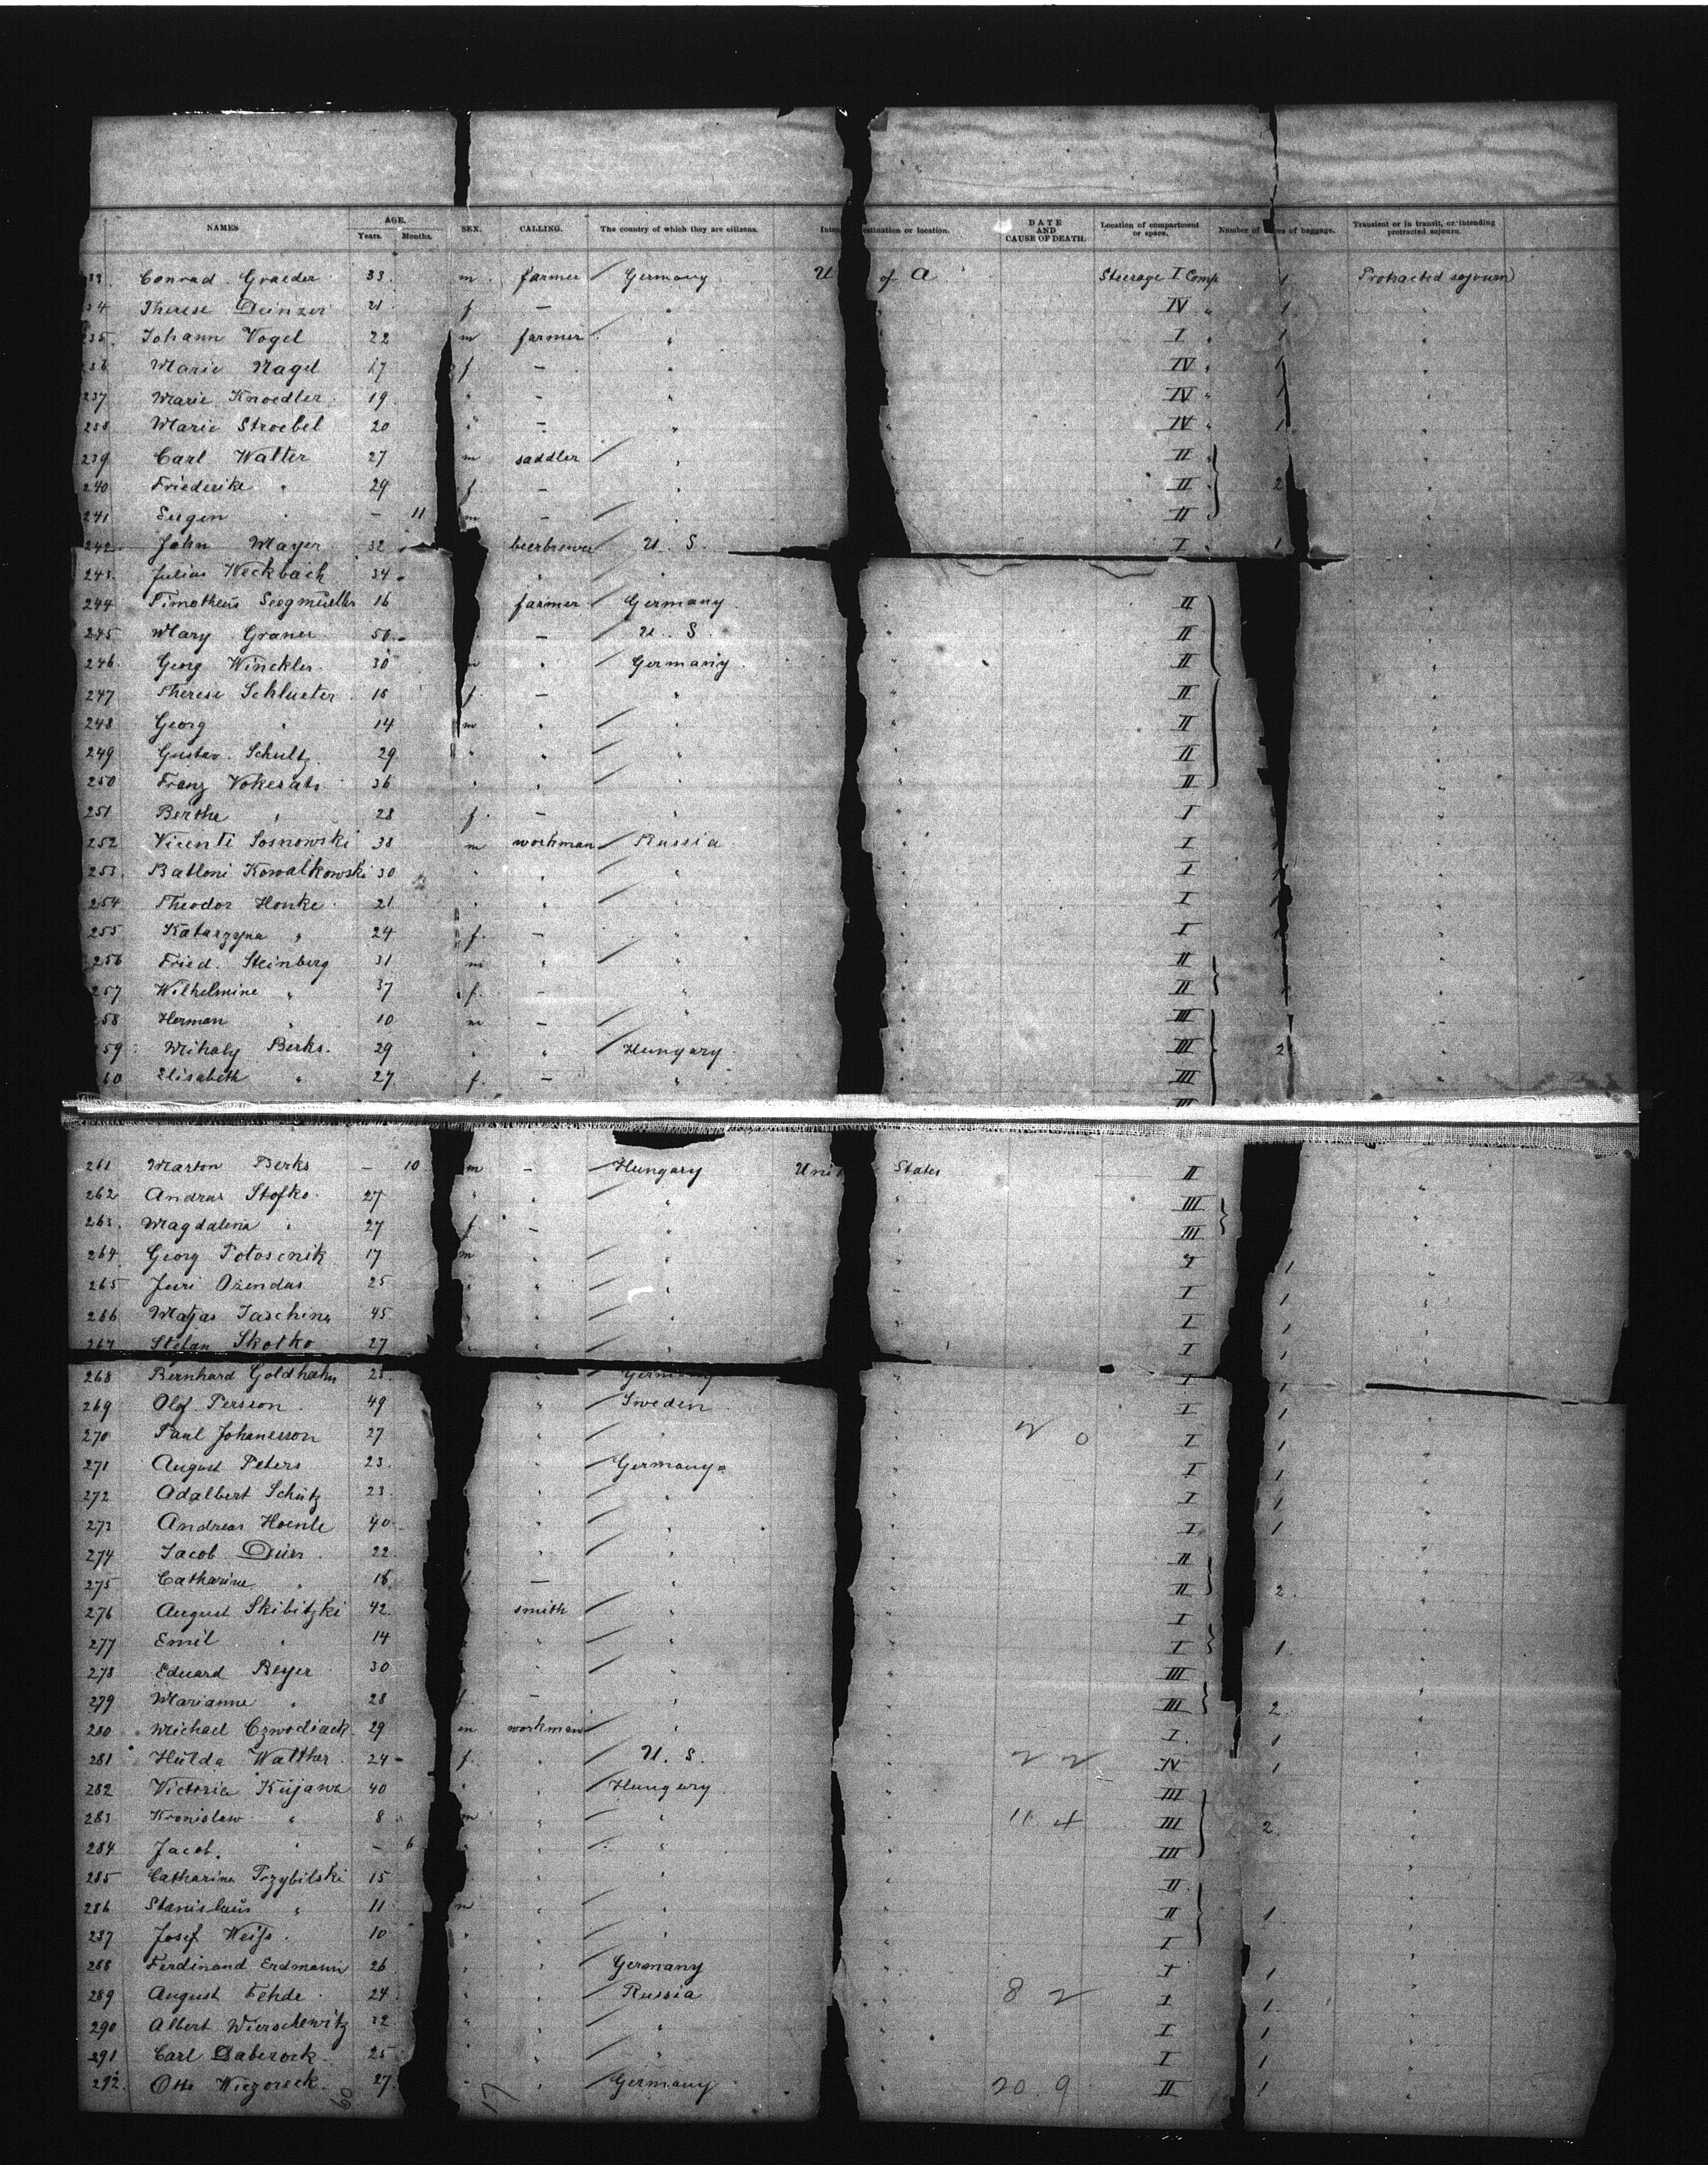 NAMES AGE. Years. Months. SEX. CALLING. The country of which they are citizens. Inten estination or location. DATE AND CAUSE OF DEATH. Location of compartment or space. Number of es of baggage. Transient or in transit, or intending protracted sojourn.
33. Conrad Graeder 33 m farmer / Germany U of A. Steerage I Comp 1 Protracted sojourn
34 Therese Deinzer 21 f — " IV " 1 "
235. Johann Vogel 22 m farmer " I " 1 "
236 Marie Nagel 17 f — " IV " 1 "
237 Marie Knoedler 19 " — " IV " 1 "
238 Marie Stroebel 20 " — " IV " 1 "
239 Carl Walter 27 m saddler / " II " "
240 Friederike " 29 f — " II " 2 "
241 Eugen " — 11 m — / " II "
242 John Mayer 32 beerbrewer U. S. I " 1 "
243. Julius Weckbach 34 " " "
244 Timotheus Seegmueller 16 farmer / Germany " II "
245 Mary Graner 50 — U. S. " II "
246. Georg Winckler 30 m " / Germany " II "
247 Therese Schlueter 18 f. — " " II "
248 Georg " 14 m " / " " II "
249 Gustav Schultz 29 " " / " " II "
250 Franz Vokesats 36 " " / " " II "
251 Berthe " 28 f. — " I "
252 Vicenti Sosnowski 38 m workman / Russia I 1 "
253. Batloni Kowalkowski 30 " " / " I 1 "
254 Theodor Honke 21 " " / " " I 1 "
255 Katarzyna " 24 f. — " " I 1 "
256 Fried. Steinberg 31 m " / " " II "
257 Wilhelmine " 37 f. — " " II "
258 Herman " 10 m — / " " III "
259 Mihaly Berks. 29 " " / Hungary " III 2 "
60 Elisabeth " 27 f. — " " III "
III
261 Marton Berks — 10 m — / Hungary Uni States II
262 Andras Stofko 27 " " / " " III "
263. Magdalena " 27 f — " " III "
264 Georg Potoscnik 17 m " / " " I 1 "
265 Juri Ozendas 25 " " / " " I 1 "
266 Matjas Taschina 45 " " / " " I 1 "
267 Stefan Skotko 27 " " / " I 1 "
268 Bernhard Goldhahn 25. " Germany " I 1
269 Olof Persson 49 " / Sweden " I 1 "
270 Paul Johanesson 27 " / " " 2 0 I 1 "
271 August Peters 23 " / Germany " I 1 "
272 Adalbert Schütz 23 " / " " I 1 "
273 Andreas Hoenle 40 " / " " I 1 "
274 Jacob Dürr 22 " " / " " II "
275 Catharine " 16 f. — " " II 2. "
276 August Skibitzki 42 smith / " " I "
277 Emil " 14 " / " " I 1 "
278 Eduard Beyer 30 " / " " III "
279 Marianne " 28 f. — " " III 2. "
280 Michael Czwodiack 29 m workman / " " I. 1 "
281 Hulda Walther 24 f. " U. S. " 2 2 IV 1 "
282 Victoria Kujawa 40 " / Hungary " III "
283 Kronislaw " 8 m " / " " 11 4 III 2. "
284 Jacob. " — 6 " " / " " III
285 Catharina Przybilski 15 " " " II. "
286 Stanislaus " 11 m " / " " II 1 "
287 Josef Weiſs. 10 " " / " " I "
288 Ferdinand Erdmann 26 " " / Germany " I 1 "
289 August Fehde 24 " " / Russia " 8 2 I 1. "
290 Albert Wierschewitz 32 " " / " " I 1 "
291 Carl Daberock. 25 " " / " " I 1 "
292. Otto Wiczoreck. 27 " " / Germany " 20. 9 II 1 "
60 17